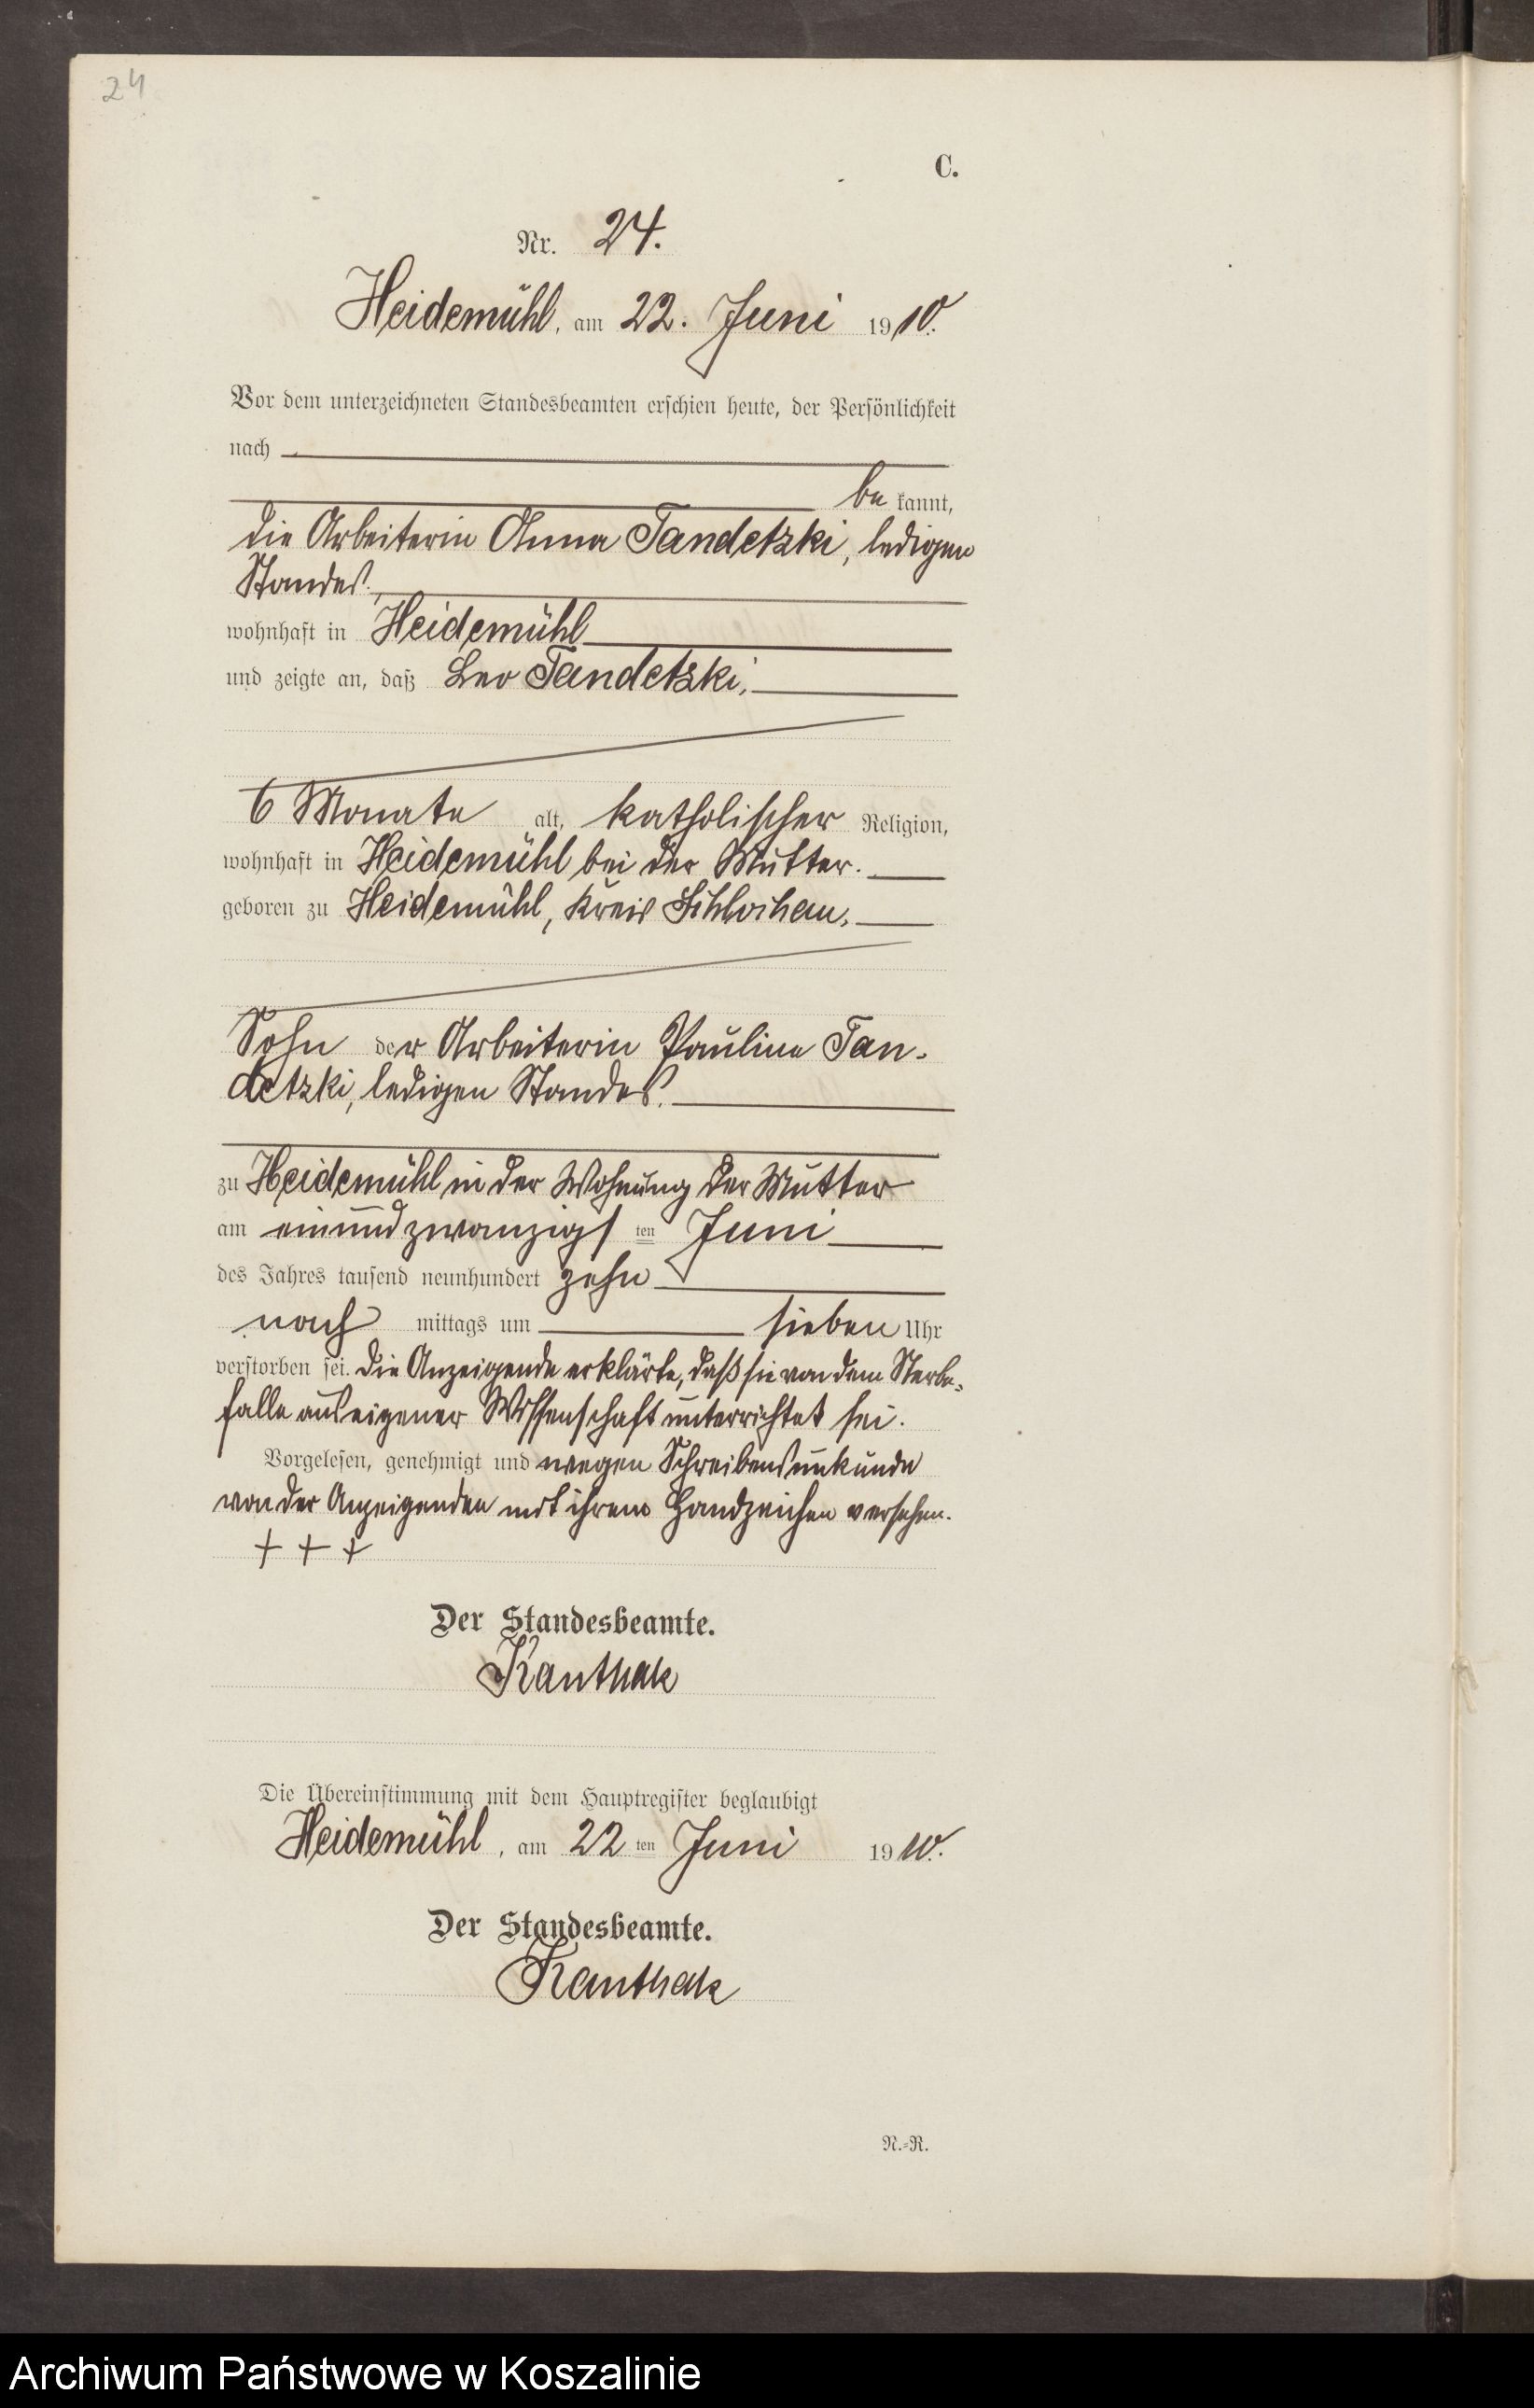 24
C.
Nr. 24.
Heidemühl, am 22. Juni 1910.
Vor dem unterzeichneten Standesbeamten erschien heute, der Persönlichkeit
nach
be kannt,
die Arbeiterin Anna Tandetzki, ledigen
Standes,
wohnhaft in Heidemühl
und zeigte an, daß Leo Tandetzki,
6 Monate alt, katholischer Religion,
wohnhaft in Heidemühl bei der Mutter.
geboren zu Heidemühl, Kreis Schlochau,
Sohn der Arbeiterin Pauline Tan-
detzki, ledigen Standes.
zu Heidemühl in der Wohnung der Mutter
am einundzwanzigsten Juni
des Jahres tausend neunhundert zehn
nach mittags um sieben Uhr
verstorben sei. Die Anzeigende erklärte, daß sie von dem Sterbe-
falle aus eigener Wissenschaft unterrichtet sei.
Vorgelesen, genehmigt und wegen Schreibensunkunde
von der Anzeigenden mit ihrem Handzeichen versehen.
+ + +
Der Standesbeamte.
Kanthak
Die Übereinstimmung mit dem Hauptregister beglaubigt
Heidemühl, am 22ten Juni 1910.
Der Standesbeamte.
Kanthak
N.-R.
Archiwum Państwowe w Koszalinie